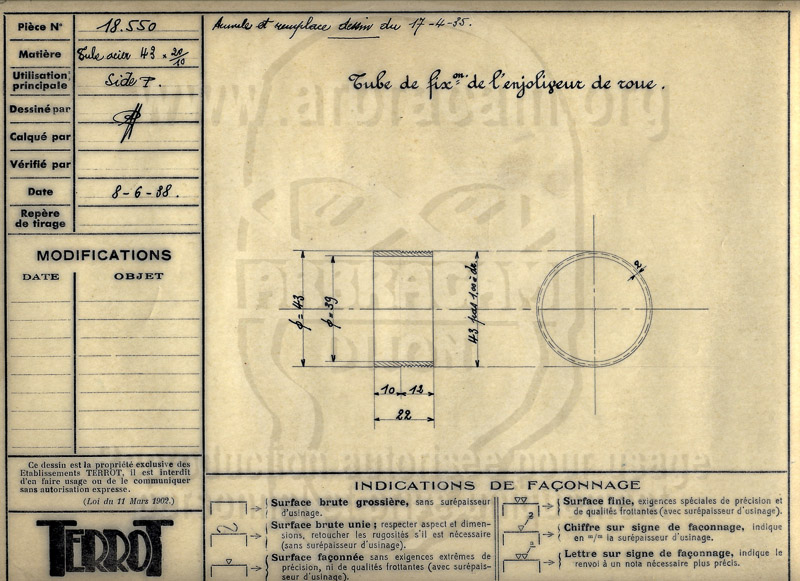 Pièce N° 18.550
Matière Tube acier 43 × 20/10
Utilisation principale Side T.
Dessiné par
Calqué par
Vérifié par
Date 8-6-38.
Repère de tirage
MODIFICATIONS
DATE OBJET
Ce dessin est la propriété exclusive des
Etablissements TERROT, il est interdit
d'en faire usage ou de le communiquer
sans autorisation expresse.
(Loi du 11 Mars 1902.)
TERROT
Annule et remplace dessin du 17-4-35.
Tube de fixon de l'enjoliveur de roue.
φ = 43
φ = 39
43 pas 1,00
2
10 12
22
INDICATIONS DE FAÇONNAGE
Surface brute grossière, sans surépaisseur
d'usinage.
Surface brute unie ; respecter aspect et dimen-
sions, retoucher les rugosités s'il est nécessaire
(sans surépaisseur d'usinage).
Surface façonnée sans exigences extrêmes de
précision, ni de qualités frottantes (avec surépais-
seur d'usinage).
Surface finie, exigences spéciales de précision et
de qualités frottantes (avec surépaisseur d'usinage).
2
Chiffre sur signe de façonnage, indique
en m/m la surépaisseur d'usinage.
a
Lettre sur signe de façonnage, indique le
renvoi à un nota nécessaire plus précis.
www.arbracam.org
ARBRACAM
DIJON
Reproduction autorisée pour usage